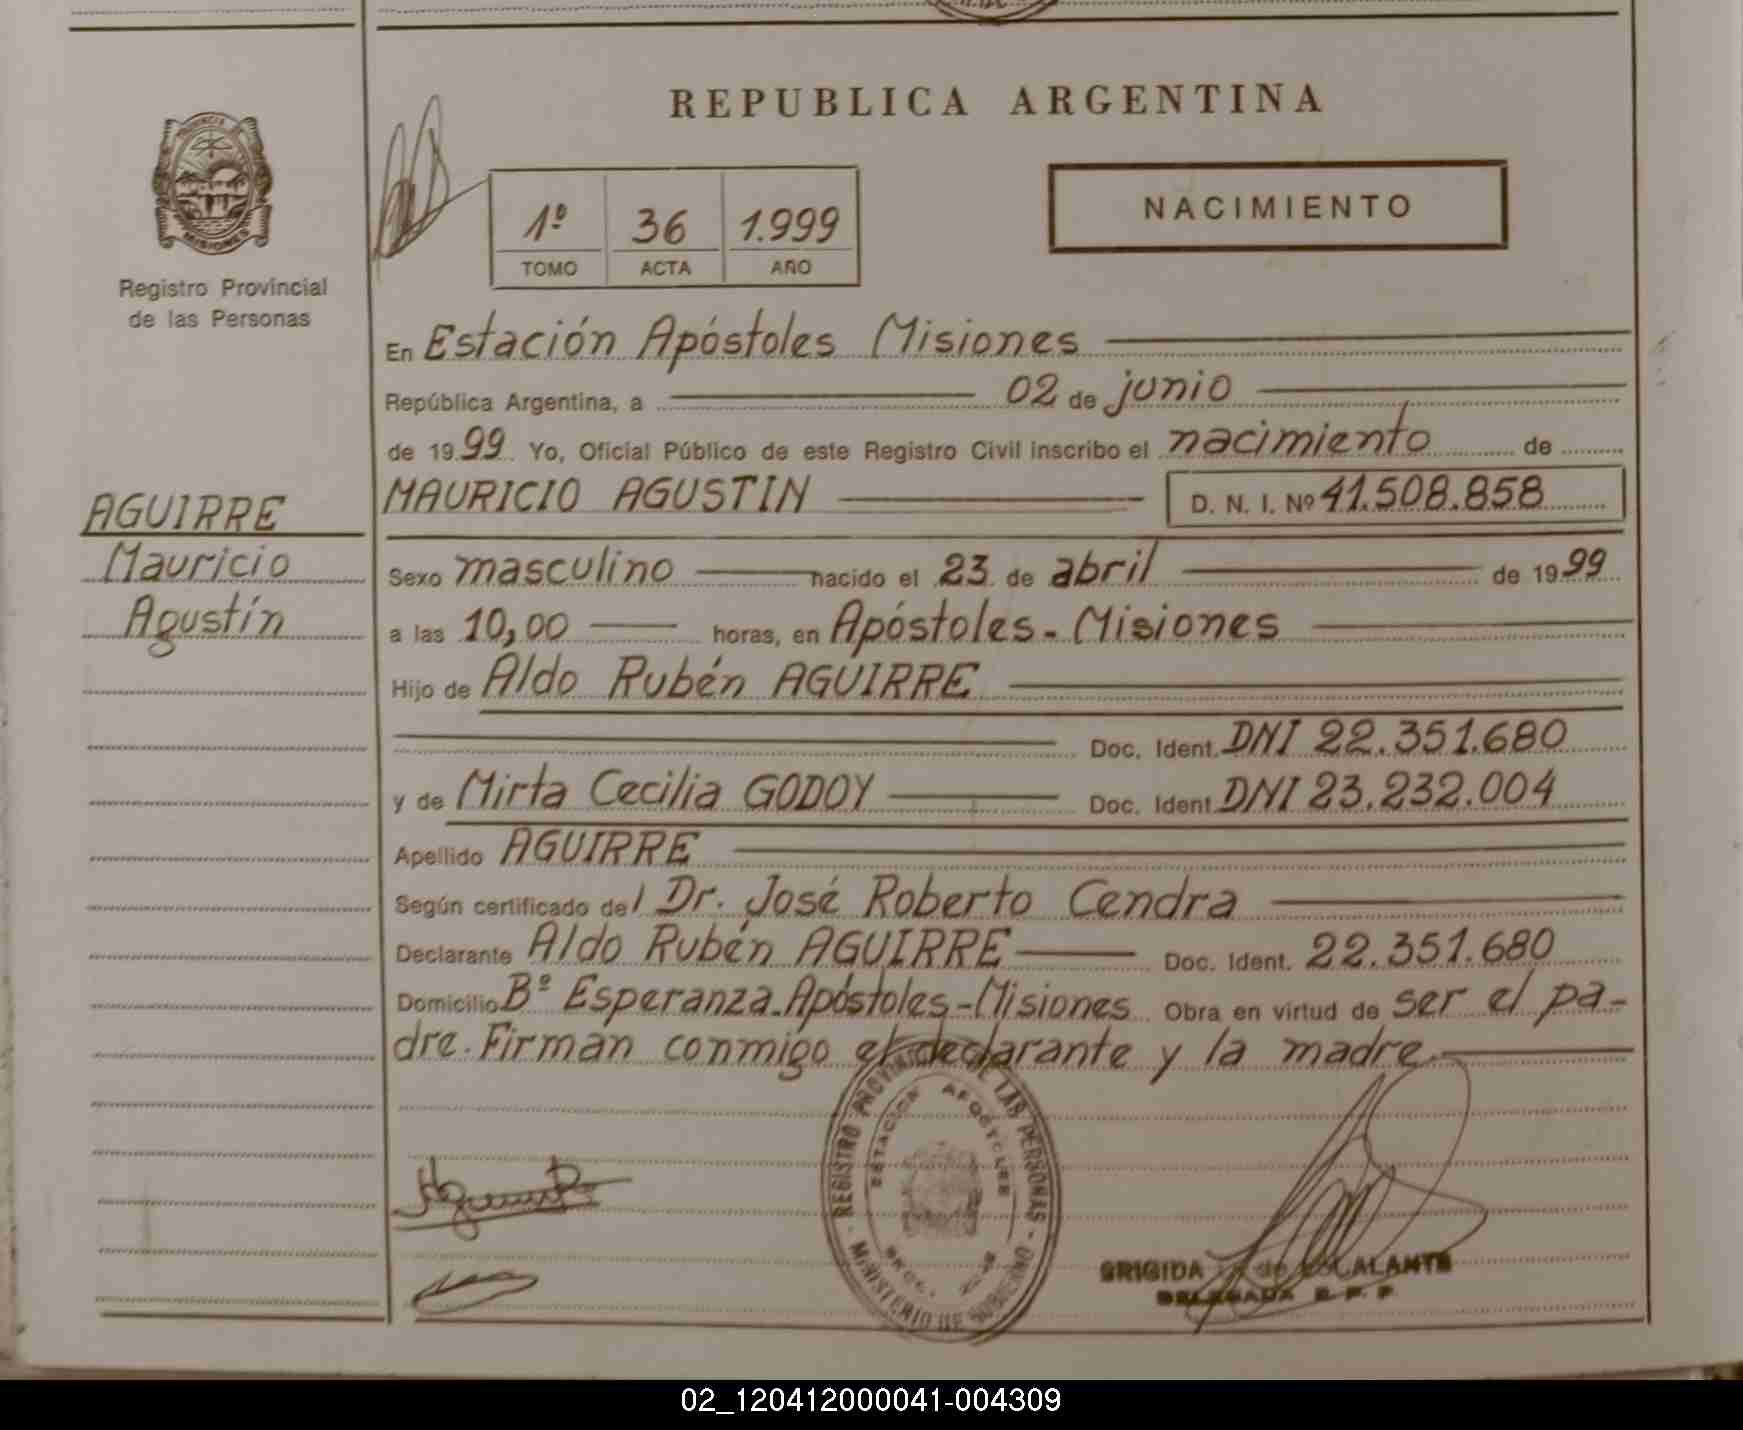 REPUBLICA ARGENTINA
PROVINCIA
MISIONES
Registro Provincial
de las Personas
1º 36 1.999
TOMO ACTA AÑO
NACIMIENTO
En Estación Apóstoles Misiones
República Argentina, a 02 de junio
de 1999 Yo, Oficial Público de este Registro Civil inscribo el nacimiento de
MAURICIO AGUSTIN D. N. I. Nº 41.508.858
AGUIRRE
Mauricio
Agustín
Sexo masculino nacido el 23 de abril de 1999
a las 10,00 horas, en Apóstoles - Misiones
Hijo de Aldo Rubén AGUIRRE
Doc. Ident. DNI 22.351.680
y de Mirta Cecilia GODOY Doc. Ident. DNI 23.232.004
Apellido AGUIRRE
Según certificado del Dr. José Roberto Cendra
Declarante Aldo Rubén AGUIRRE Doc. Ident. 22.351.680
Domicilio Bº Esperanza - Apóstoles - Misiones Obra en virtud de ser el pa-
dre. Firman conmigo el declarante y la madre.
REGISTRO PROVINCIAL DE LAS PERSONAS - MINISTERIO DE GOBIERNO -
ESTACION APOSTOLES
BRIGIDA de ESCALANTE
DELEGADA
02_120412000041-004309